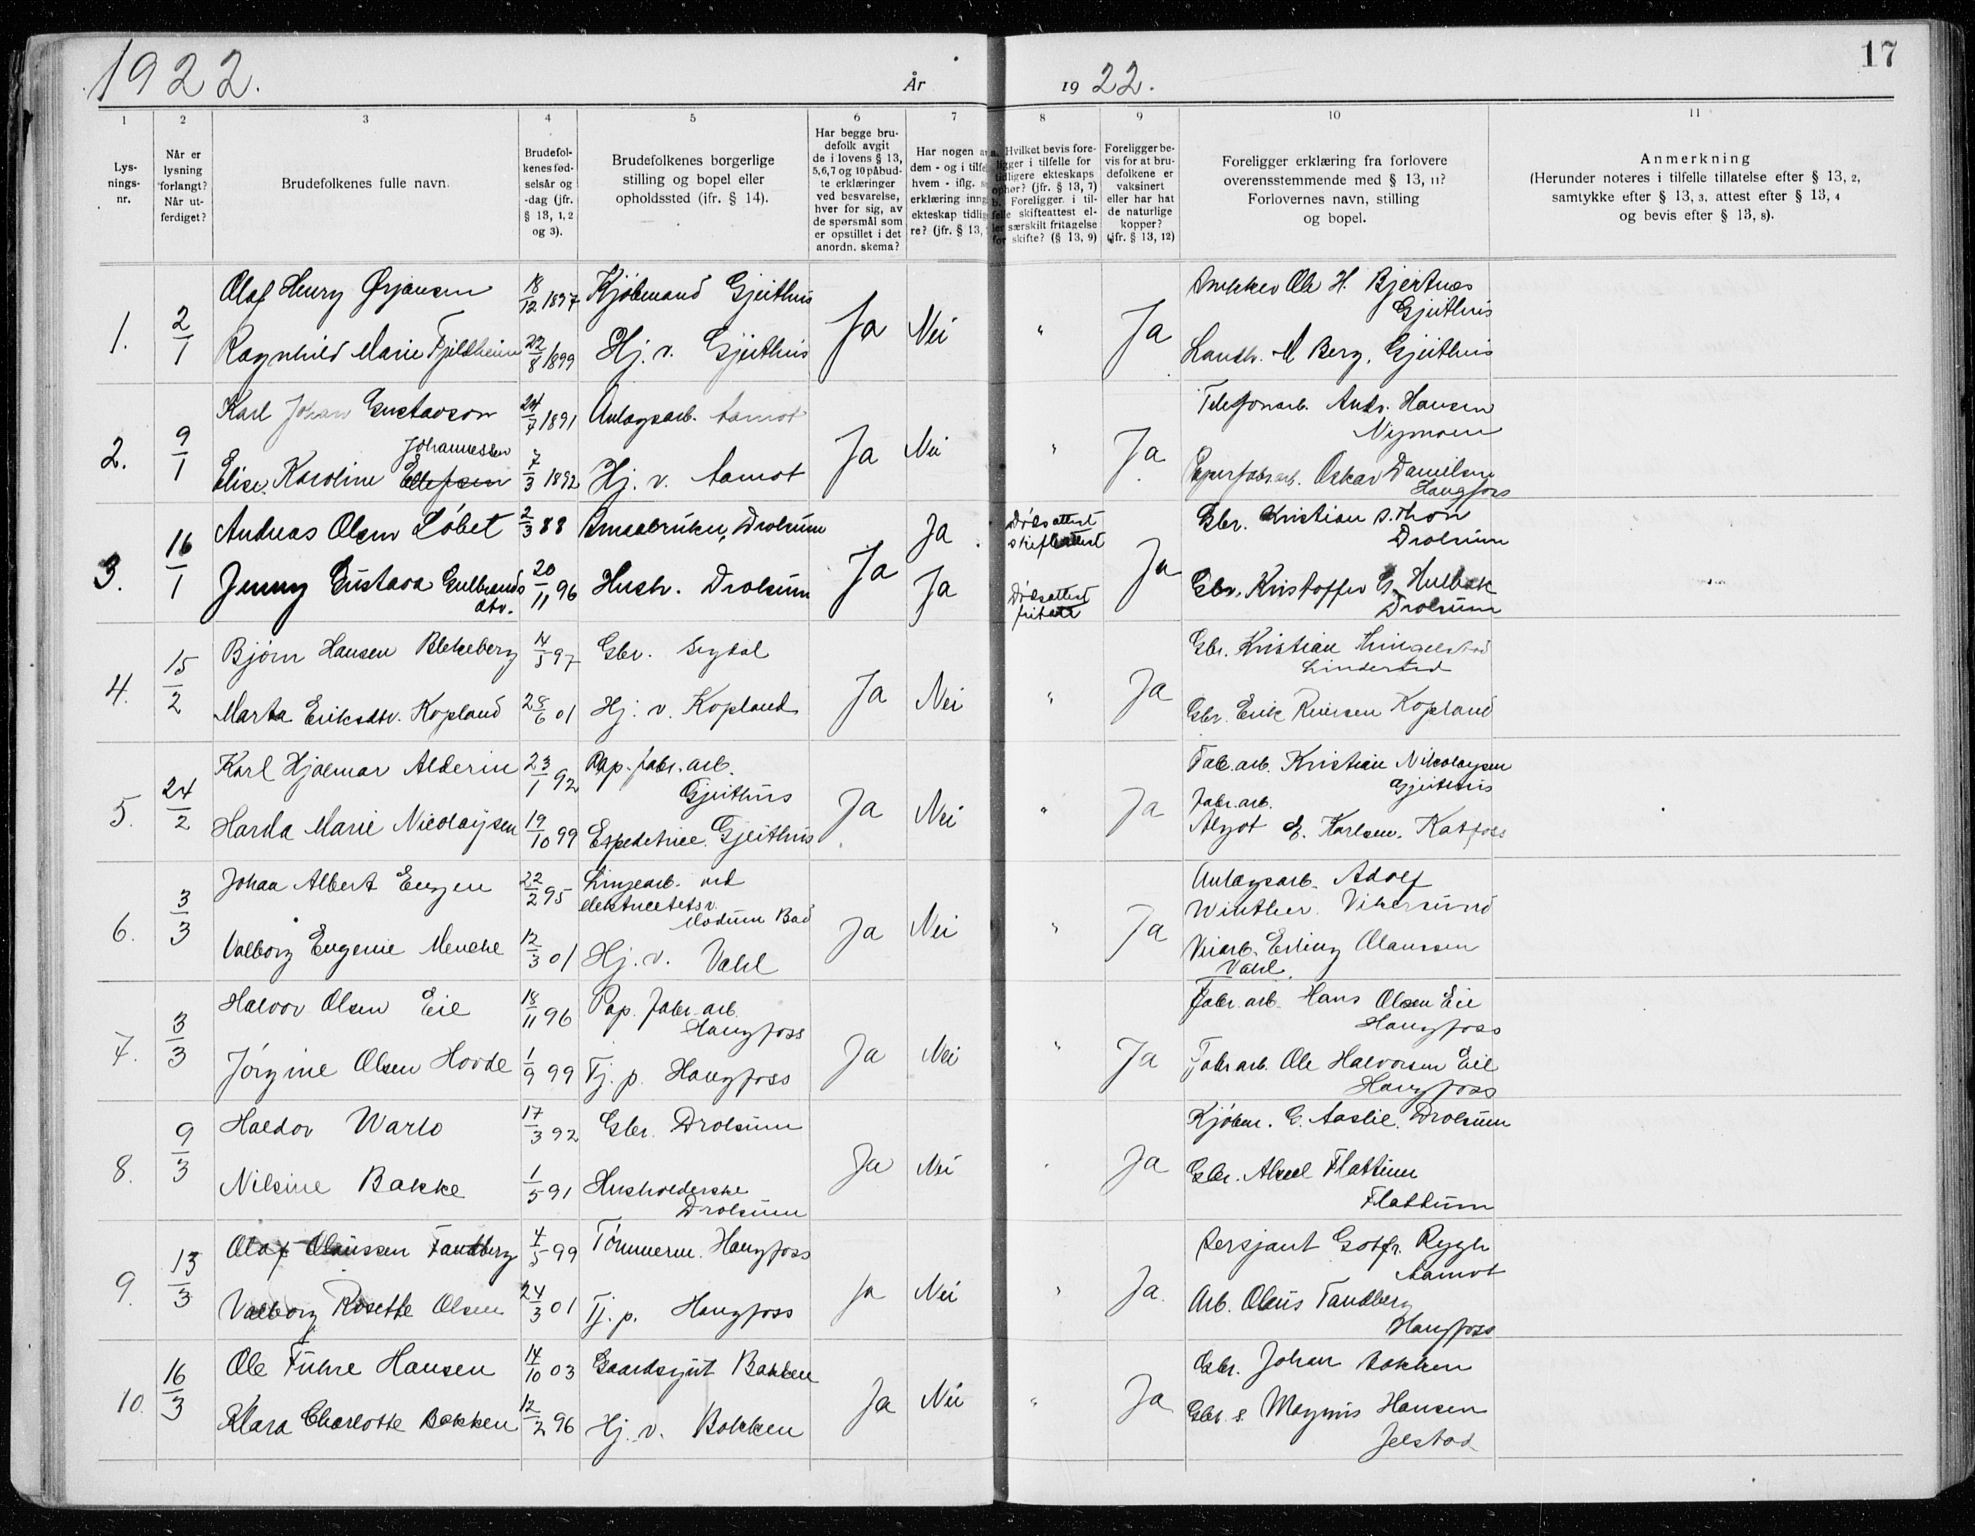 1922.
År
19 22.
17
1
2
3
4
5
6
7
8
9
10
11
Lys-
nings-
nr.
Når er
lysning
forlangt?
Når ut-
ferdiget?
Brudefolkenes fulle navn.
Brudefol-
kenes fød-
selsår og
-dag (jfr.
§ 13, 1, 2
og 3).
Brudefolkenes borgerlige
stilling og bopel eller
opholdssted (ifr. § 14).
Har begge bru-
defolk avgit
de i lovens § 13,
5,6,7 og 10 påbud-
te erklæringer
ved besvarelse,
hver for sig, av
de spørsmål som
er opstillet i det
anordn. skema?
Har nogen a
dem - og i tilfe
hvem - iflg. s
erklæring inng
ekteskap tidlig
re? (jfr. § 13,
a. Hvilket bevis fore-
ligger i tilfelle for
tidligere ekteskaps
ophør? (jfr. § 13, 7)
b. Foreligger i til-
felle skifteattest el-
ler særskilt fritagelse
for skifte? (§ 13, 9)
Foreligger be-
vis for at bru-
defolkene er
vaksinert
eller har hat
de naturlige
kopper?
(jfr. § 13, 12)
Foreligger erklæring fra forlovere
overensstemmende med § 13, 11?
Forlovernes navn, stilling
og bopel.
Anmerkning
(Herunder noteres i tilfelle tillatelse efter § 13, 2,
samtykke efter § 13, 3, attest efter § 13, 4
og bevis efter § 13, 8).
Olaf Henry Ørjansen 18/12 1897 Kjøbmand Gjeithus Ole H. Bjertnæs
Gjeithus
1. 2/1 Ja Nei " Ja
Ragnhild Marie Fjeldheim 22/8 1899 Hj. v. Gjeithus Landh. M Berg, Gjeithus
Karl Johan Gustavson 24/7 1891 Anlægsarb. Aamot Telefonarb. Andr. Hansen
Nymoen
2. 9/1 Johannessen Ja Nei " Ja
Elise Karoline Ellefsen 7/3 1892 Hj. v. Aamot Papirfabr.arb. Oskar Danielsen
Haugfoss
Andreas Olsen Løbet 2/3 88 Smaabruker, Drolsum Ja Dødsattest Gbr. Kristian S. Thon
skifteattest Drolsum
3. 16/1 Ja Ja
Jenny Gustava Gulbrands 20/11 96 Hush. Drolsum Ja Dødsattest Gbr. Kristoffer G. Hulbak
dtr. Drolsum
Bjørn Hansen Blekeberg 14/5 97 Gbr. Sigdal Gbr. Kristian
4. 15/2 Ja Nei " Ja
Marta Eriksdtr. Kopland 28/6 01 Hj. v. Kopland Gbr. Erik Kopland
Karl Hjalmar Alderin 23/1 92 Pap. fabr. arb. Fab. arb. Kristian Nikolaysen
Gjeithus Gjeithus
5. 24/2 Ja Nei " Ja Fabr. arb.
Harda Marie Nicolaysen 19/10 99 Expeditrice Gjeithus Algot E. Karlsen. Katfoss
Johan Albert Engen 22/2 95 Linjearb. ved Anlægsarb. Adolf
elektricitetsv. Winther Vikersund
Modum Bad
6. 3/3 Ja Nei " Ja
Valborg Eugenie Menche 12/3 01 Hj. v. Vahl Veiarb. Erling Olaussen
Vahl.
Halvor Olsen Eie 18/11 96 Pap. fabr. arb. Fabr. arb. Hans Olsen Eie
Haugfoss Haugfoss
7. 3/3 Ja Nei " Ja
Jørgine Olsen Hovde 1/9 99 Tj. p. Haugfoss Fabr arb. Ole Halvorsen Eie
Haugfoss
Haldor Warlo 17/3 92 Gbr. Drolsum Kjøbm. G. Aaslie. Drolsum
8. 9/3 Ja Nei " Ja
Nilsine Bakke 1/5 91 Husholderske Gbr. Aksel Flattum
Drolsum Flattum
Olaf Olaussen Fandberg 4/5 99 Tømmerm. Haugfoss Sersjant Gotfr. Rygh
Aamot
9. 13/3 Ja Nei " Ja
Valborg Rosette Olsen 24/3 01 Tj. p. Haugfoss Arb. Olaus Tandberg
Haugfoss
Ole Fuhre Hansen 14/10 03 Gaardsgut Bakken Gbr. Johan Bakken
10. 16/3 Ja Nei " Ja
Klara Charlotte Bakken 12/2 96 Hj. v. Bakken Gbr. s. Magnus Hansen
Jelstad